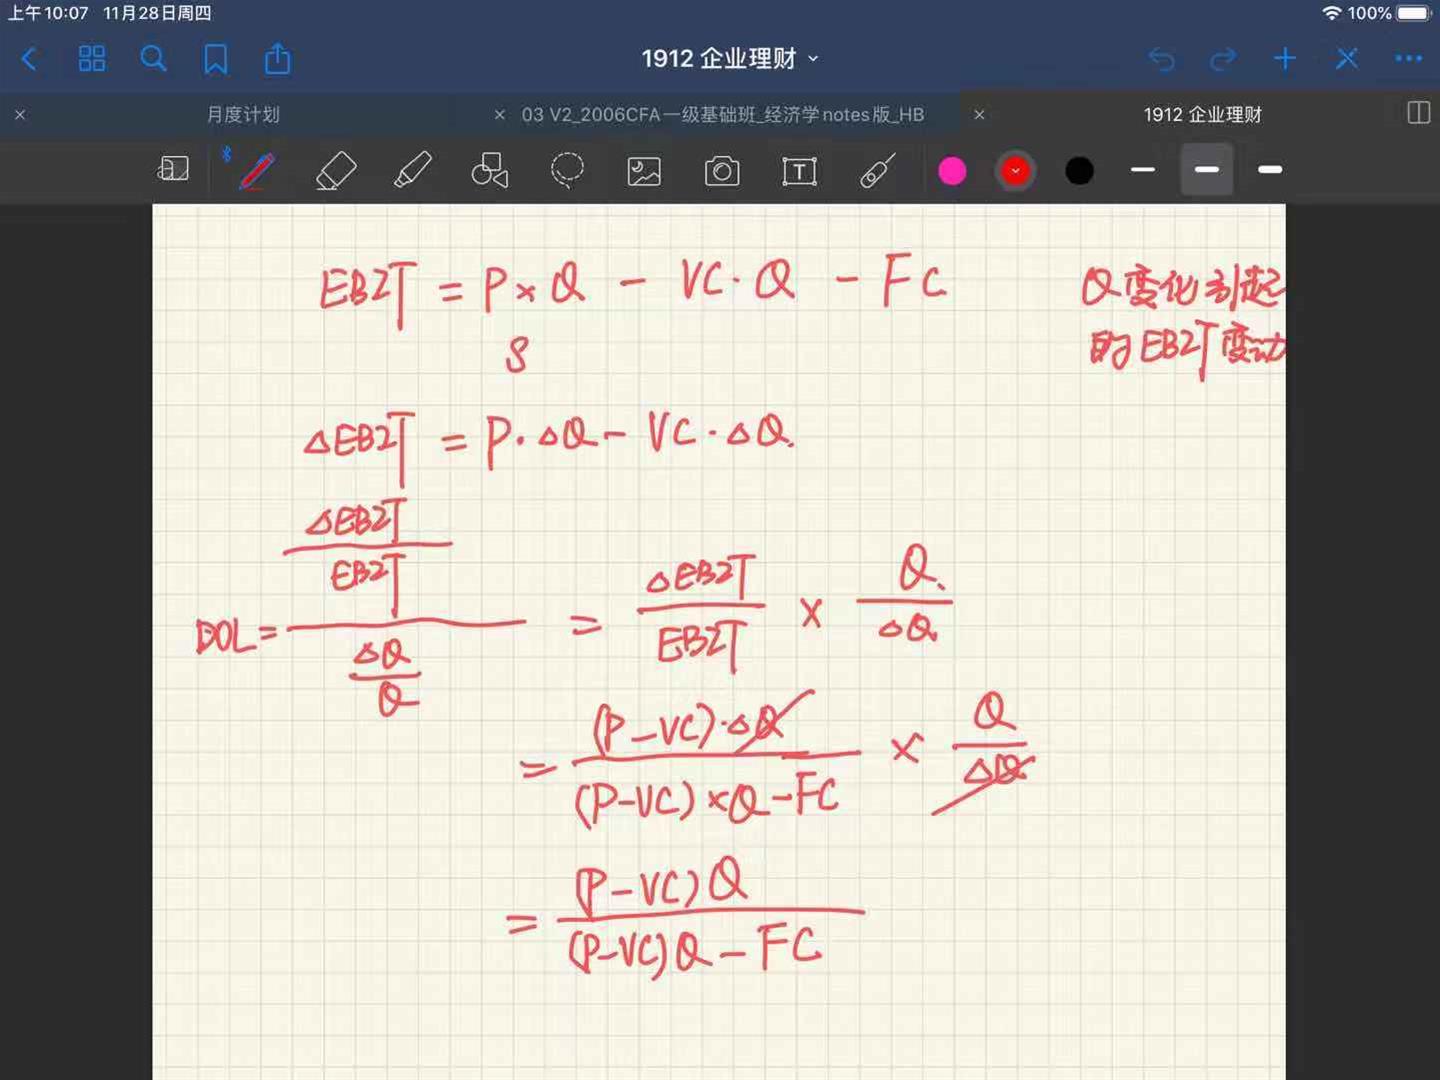 上午10:07 11月28日周四 100%
1912 企业理财
月度计划 03 V2_2006CFA一级基础班_经济学notes版_HB 1912 企业理财
T
EBIT = P × Q - VC · Q - FC
S
Q变化引起
的EBIT变动
ΔEBIT = P · ΔQ - VC · ΔQ
DOL = (ΔEBIT / EBIT) / (ΔQ / Q) = ΔEBIT / EBIT × Q / ΔQ
= (P - VC) · ΔQ / (P - VC) × Q - FC × Q / ΔQ
= (P - VC) Q / (P - VC) Q - FC